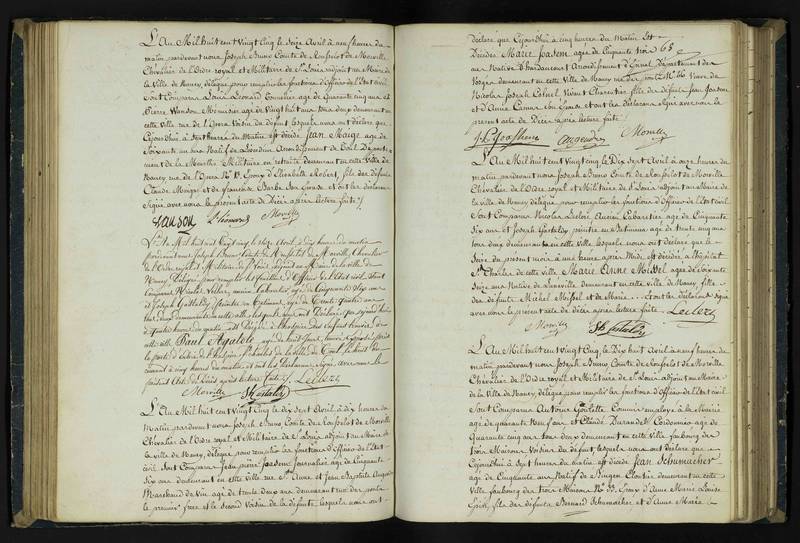 L'An Mil huit cent Vingt Cinq le Seize Avril à neuf heures du
matin pardevant nous Joseph Bruno Comte de Rouffelot de Morville
Chevalier de l'Ordre royal et Militaire de St Louis adjoint au Maire de
la Ville de Nancy délégué pour remplir les fonctions d'Officier de l'Etat civil
Sont Comparus Léonard agé de Quarante cinq ans et
Pierre Vanson Menuisier agé de Vingt huit ans tous deux demeurant en
cette ville rue de l'Opera Voisin du défunt lesquels nous ont déclaré que
Cejourd'hui à Sept heures du Matin est décédé Jean Maige agé de
Soixante ans Natif de Arrondissement de Toul Départe-
ment de la Meurthe Militaire en retraite demeurant en cette Ville de
Nancy rue de l'Opera No Epoux d'Elisabeth Robert, fils des défunts
Claude Maige et de françoise Barbe Son Epouse et ont les déclarans
Signé avec nous le present acte de Décès après lecture faite
Vanson Morville
L'An Mil huit cent Vingt Cinq, le Seize Avril, à dix heures du matin
pardevant nous Joseph Bruno Comte de Rouffelot de Morville, Chevalier
de l'Ordre royal et Militaire de St Louis, adjoint au Maire de la ville de
Nancy délégué pour remplir les fonctions d'Officier de l'Etat civil, Sont
Comparus Nicolas Leclerc, ancien Cabaretier, agé de Cinquante Six ans
et Joseph Gastaldy, peintre en batimens, agé de Trente Quatre ans
tous deux demeurants en cette ville, lesquels nous ont Déclaré que
à quatre heures du matin est décédé à l'hospice des Enfants trouvés de
cette ville Paul Agatele agé de huit jours,
la porte d'entrée de l'hospice de la ville de Toul le huit du
courant à cinq heures du matin et ont les Déclarans Signé avec nous le
présent Acte de Décès après lecture faite Leclerc
Morville
L'An Mil huit cent Vingt Cinq le dix sept Avril à dix heures du
Matin pardevant nous Joseph Bruno Comte de Rouffelot de Morville
Chevalier de l'Ordre royal et Militaire de St Louis adjoint au Maire de
la ville de Nancy, délégué pour remplir les fonctions d'Officier de l'Etat
civil, Sont Comparus Jean pierre Joasem Journalier agé de Cinquante
Six ans demeurant en cette ville rue Ste Anne et Jean Baptiste
Marchand de Vin agé de trente deux ans demeurant rue des ponts
le premier frere et le second Voisin de la défunte, lesquels nous ont
déclaré que Cejourd'hui à cinq heures du Matin Est
Décédée Marie Joasem agée de Cinquante trois 65
ans Native d'hardancourt Arrondissement d'Epinal Département des
Vosges demeurant en cette Ville de Nancy rue des ponts No Veuve de
Nicolas Joseph Vivant Charentier fille des défunts Jean Joasem
et d'Anne Son Epouse et ont les déclarans Signé avec nous le
présent acte de Décès après lecture faite
Morville
L'An Mil huit cent Vingt Cinq le Dix sept Avril à onze heures du
matin pardevant nous Joseph Bruno Comte de Rouffelot de Morville
Chevalier de l'Ordre royal et Militaire de St Louis adjoint au Maire de
la ville de Nancy délégué pour remplir les fonctions d'Officier de l'Etat civil
Sont Comparus Nicolas Leclerc Ancien Cabaretier agé de Cinquante
Six ans et Joseph Gastaldy peintre en Batimens agé de trente cinq ans
tous deux demeurant en cette ville lesquels nous ont declaré que le
Seize du present mois à une heure après Midi est décédée à l'hopital
St Charles de cette ville Marie Anne Moissel agée de Soixante
Seize ans Native de Luneville demeurant en cette ville de Nancy fille
des défunts Michel Moissel et de Marie ... Et ont les déclarans signé
avec nous le present acte de Décès après lecture faite Leclerc
Morville
L'An Mil huit cent Vingt Cinq le Dix huit Avril à neuf heures du
matin pardevant nous Joseph Bruno Comte de Rouffelot de Morville
Chevalier de l'Ordre royal et Militaire de St Louis adjoint au Maire
de la Ville de Nancy, délégué pour remplir les fonctions d'Officier de l'Etat civil
Sont Comparus Antoine Goulette Commis employé à la Mairie
agé de quarante Neuf ans et Claude Durand Cordonnier agé de
Quarante cinq ans tous deux demeurant en cette ville faubourg des
trois Maisons Voisins du défunt lesquels nous ont déclaré que
Cejourd'hui à Sept heures du matin est décédé Jean Schumacher
agé de Cinquante ans Natif de Bingen demeurant en cette
Ville faubourg des trois Maisons No 99 Epoux d'Anne Marie Louise
fils des défunts Bernard Schumacher et d'Anne Marie